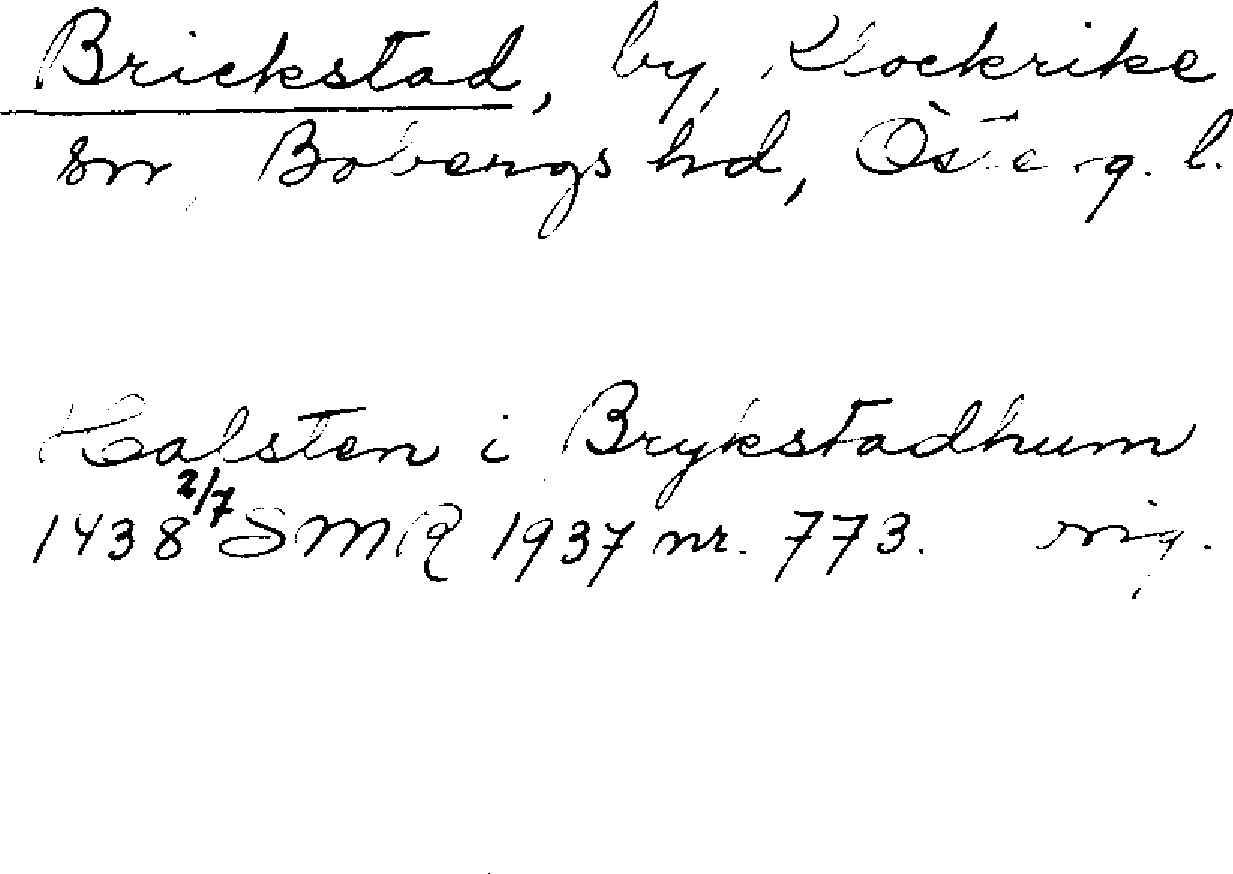 Brickstad, by, Klockrike
sn, Bobergs hd, Österg. l.
Halsten i Brykstadhum
1438 2/7 SMR 1937 nr. 773. orig.